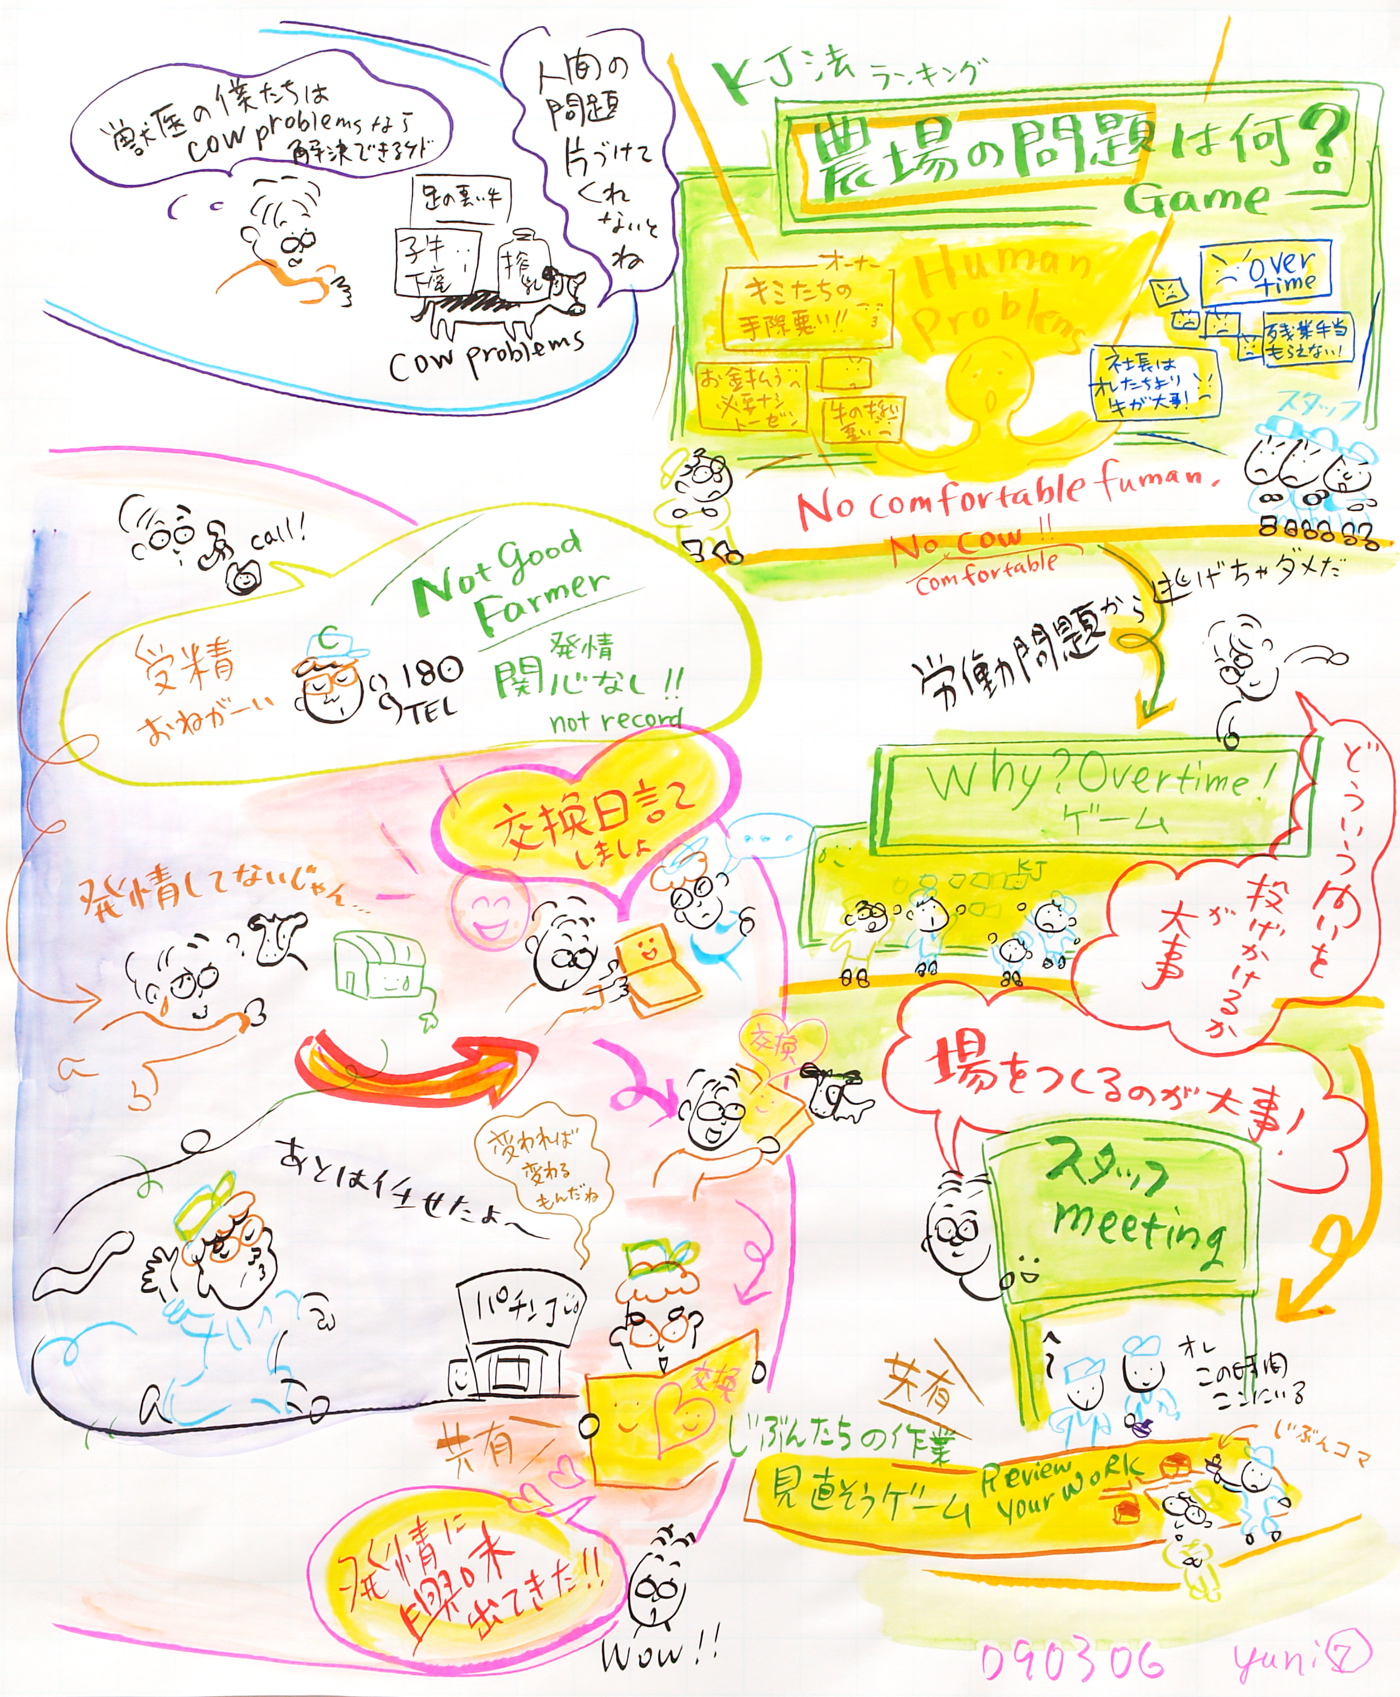 獣医の僕たちは
cow problemsなら
解決できるケド
足の悪い牛
子牛
下痢
搾乳
cow problems
人間の
問題
片づけて
くれ
ないと
ね
KJ法 ランキング
農場の問題は何?
Game
Human
Problems
オーナー
キミたちの
手際悪い!!
お金払う
必要ナシ
トーゼン
牛の扱い
悪い
Over
time
残業手当
もらえない!
社長は
オレたちより
牛が大事!
スタッフ
No comfortable fuman.
No cow!!
comfortable
労働問題から逃げちゃダメだ
call!
Not Good
Farmer
受精
おねがーい
C
180
TEL
発情
関心なし!!
not record
交換日記て
しましょ
発情してないじゃん...
交換
あとはイチせたよ〜
変われば
変わる
もんだね
パチンコ
交換
共有
発情に
興味
出てきた!!
Wow!!
Why?Overtime!
ゲーム
KJ
どういう問いを
投げかけるか
が
大事
場をつくるのが大事!
スタッフ
meeting
オレ
この時間
ここにいる
共有
じぶんたちの作業
見直そうゲーム
Review
your work
じぶんコマ
090306 yuni⑦